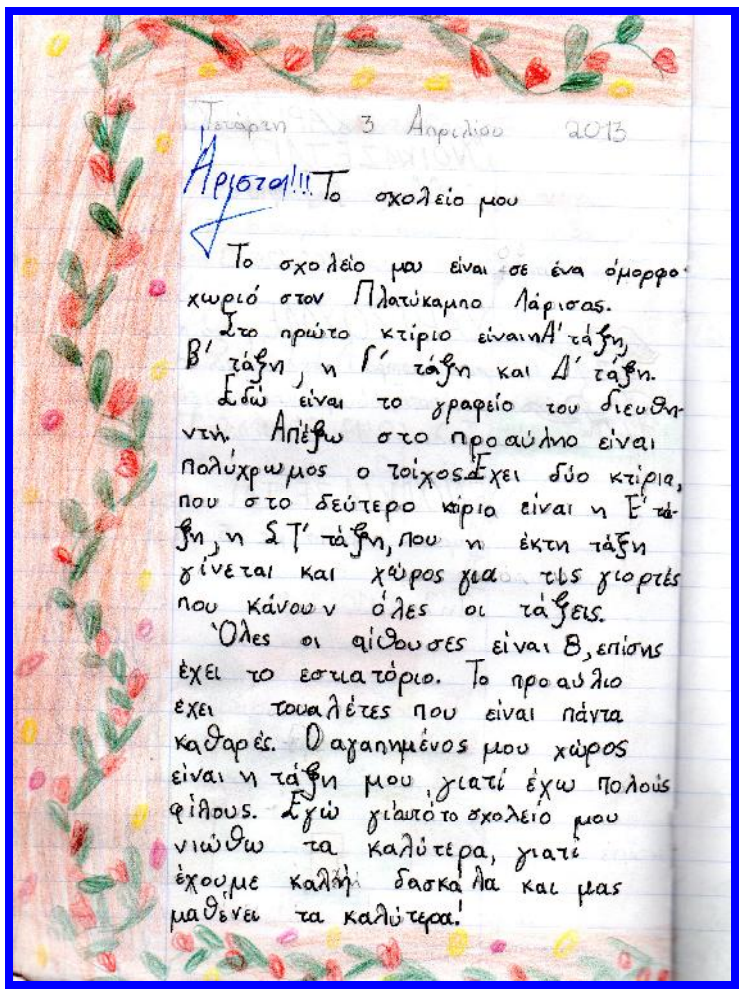 Τετάρτη 3 Απριλίου 2013
Άριστα!!! Το σχολείο μου
Το σχολείο μου είναι σε ένα όμορφο
χωριό στον Πλατύκαμπο Λάρισας.
Στο πρώτο κτίριο είναι η Α' τάξη,
Β' τάξη, η Γ' τάξη και Δ' τάξη.
Εδώ είναι το γραφείο του διευθη-
ντή. Απέξω στο προαύλιο είναι
πολύχρωμος ο τοίχος. Έχει δύο κτίρια,
που στο δεύτερο κίριο είναι η Ε' τά-
ξη, η ΣΤ' τάξη, που η έκτη τάξη
γίνεται και χώρος για τις γιορτές
που κάνουν όλες οι τάξεις.
Όλες οι αίθουσες είναι 8, επίσης
έχει το εστιατόριο. Το προαύλιο
έχει τουαλέτες που είναι πάντα
καθαρές. Ο αγαπημένος μου χώρος
είναι η τάξη μου, γιατί έχω πολούς
φίλους. Εγώ γι'αυτό το σχολείο μου
νιώθω τα καλύτερα, γιατί
έχουμε καλή δασκάλα και μας
μαθένει τα καλύτερα!